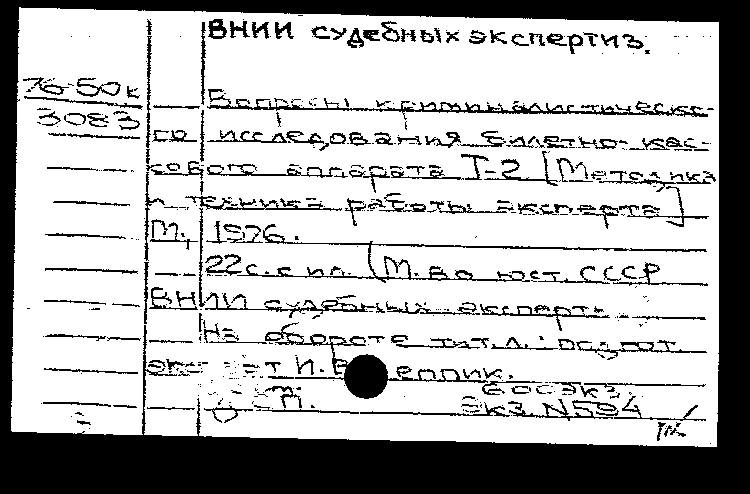 ВНИИ судебных экспертиз.
76-50к
3083
Вопросы криминалистическо-
го исследования билетно-кас-
сового аппарата Т-2 [Методика
и техника работы эксперта]
М., 1976.
22с. с ил. (М.во юст. СССР
ВНИИ судебных эксперт.
На обороте тит.л.:
т И.
еппик.
60с экз.
п.
экз N594